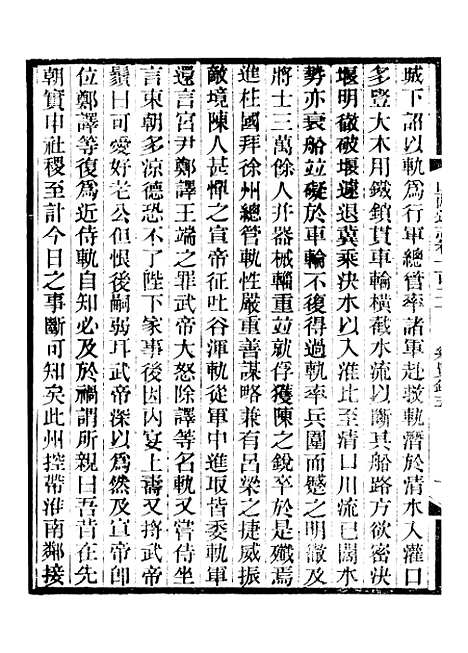 城下詔以軌爲行軍總管率諸軍赴救軌潛於清水入灌口
多豎大木用鐵鎖貫車輪橫截水流以斷其船路方欲密決
堰明徹破堰遽退冀乘決水以入淮比至清口川流已闊水
勢亦衰船並礙於車輪不復得過軌率兵圍而蹙之明徹及
將士三萬餘人并器械輜重並就俘獲陳之銳卒於是殲焉
進柱國拜徐州總管軌性嚴重善謀略兼有呂梁之捷威振
敵境陳人甚憚之宣帝征吐谷渾軌從軍中進取皆委軌軍
還言宮尹鄭譯王端之罪武帝大怒除譯等名軌又嘗侍坐
言東朝多涼德恐不了陛下家事後因內宴上壽又捋武帝
鬚曰可愛好老公但恨後嗣弱耳武帝深以爲然及宣帝卽
位鄭譯等復爲近侍軌自知必及於禍謂所親曰吾昔在先
朝實申社稷至計今日之事斷可知矣此州控帶淮南鄰接